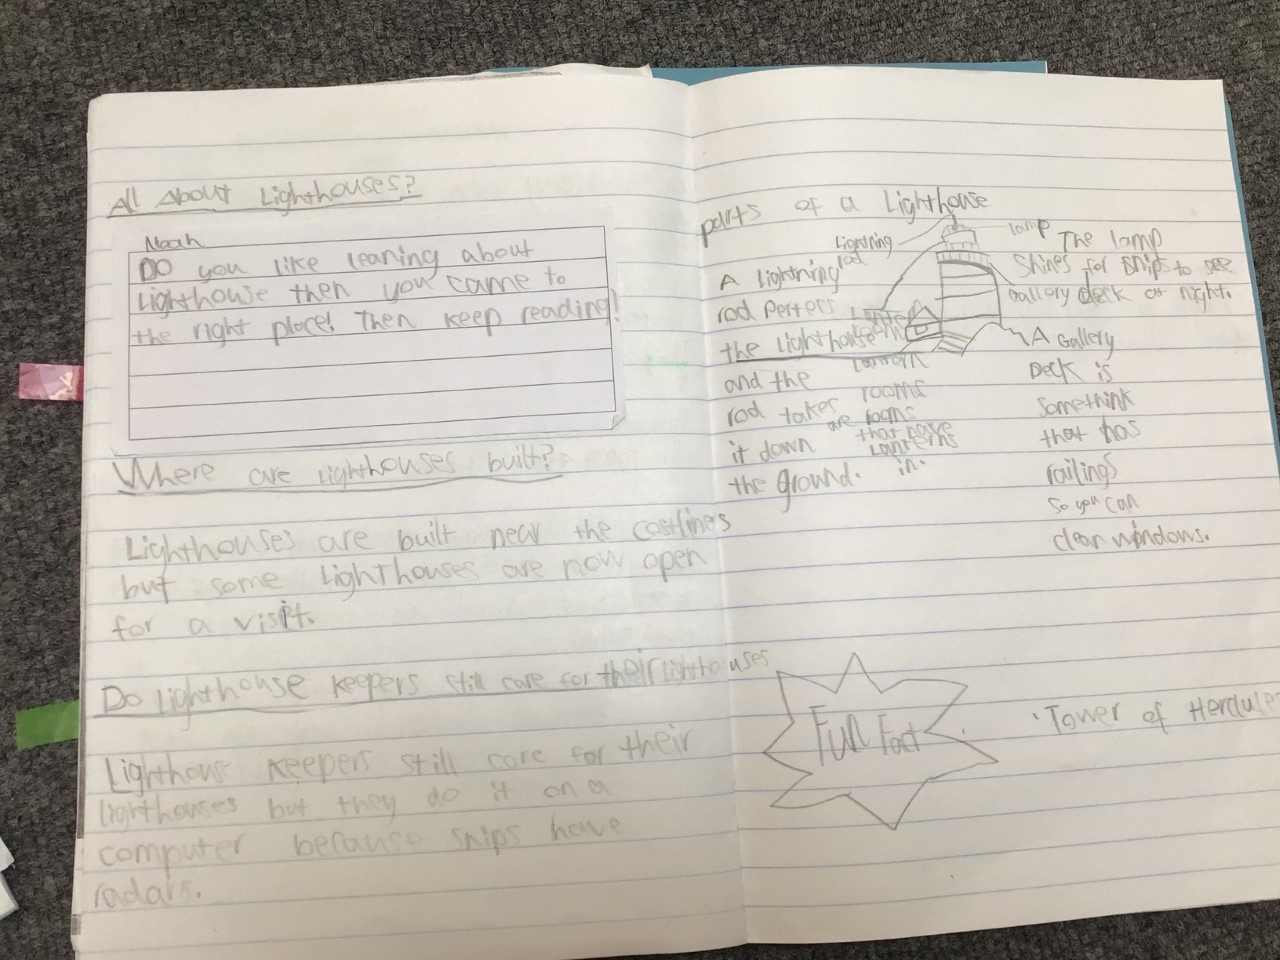 All About Lighthouses?
Noah
Do you like learing about
lighthouse then you came to
the right place! Then keep reading!
Where are lighthouses built?
Lighthouses are built near the costlines
but some lighthouses are now open
for a visit.
Do lighthouse keepers still care for their lighthouses
Lighthouse keepers still care for their
lighthouses but they do it on a
computer because ships have
radars.
parts of a Lighthouse
Lightning
rod
A lightning
rod
the lighthouse
and the
rod takes
it down
the ground.
Lantern
rooms
are rooms
that have
lanterns
in.
lamp The lamp
Shines for ships to see
at night.
Gallery deck
A Gallery
Deck is
somethink
that has
railings
so you can
clear windows.
Fun Fact
· Tower of Hercules